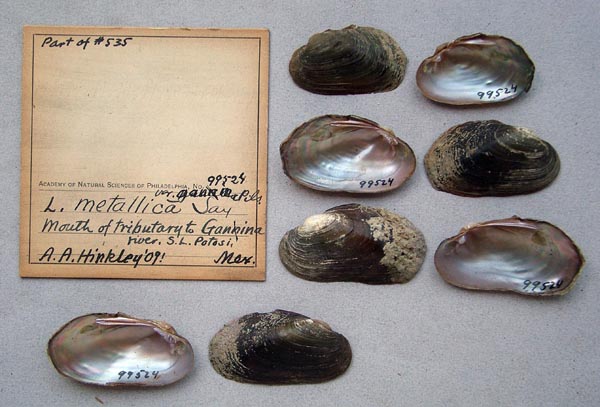 Part of #535
ACADEMY OF NATURAL SCIENCES OF PHILADELPHIA, No. 99524
var. Pils
L. metallica Say
Mouth of tributary to Gannina
river. S.L. Potosi,
A.A. Hinkley '09! Mex.
99524
99524
99524
99524